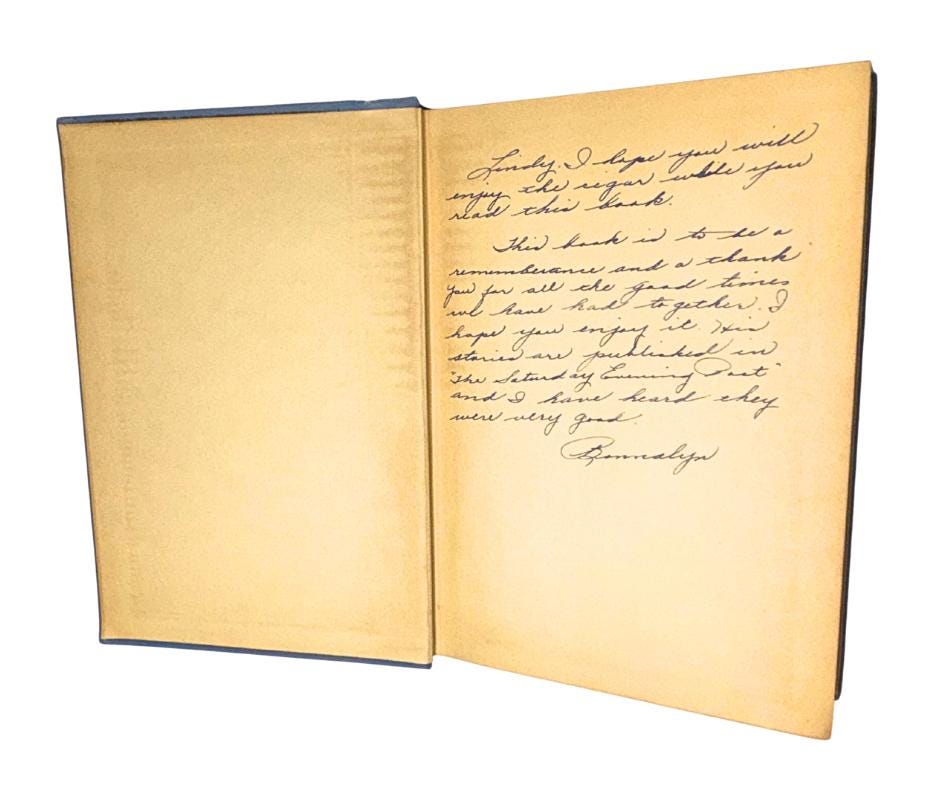 Lindy. I hope you will
enjoy the cigar while you
read this book.
This book is to be a
rememberance and a thank
you for all the good times
we have had together. I
hope you enjoy it. His
stories are published in
"The Saturday Evening Post"
and I have heard they
were very good.
Bonnalyn